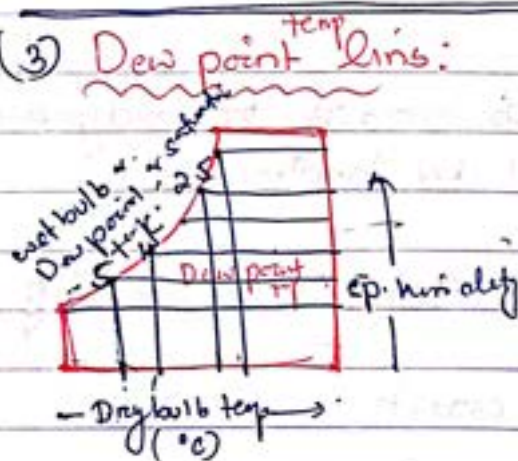 (3) Dew point temp lins:
wet bulb & saturatn
Dew point temp.
25
5
Dew point
sp. humidity
Dry bulb temp
(°C)